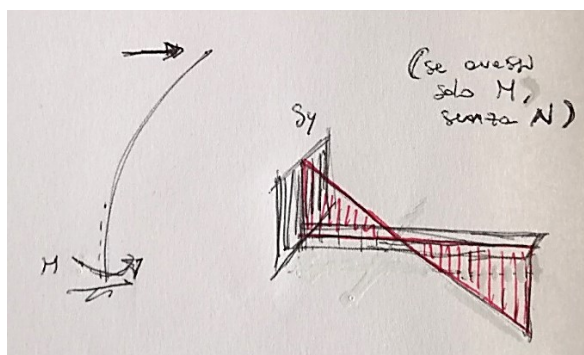 (se avessi
solo M,
senza N)
Sy
M